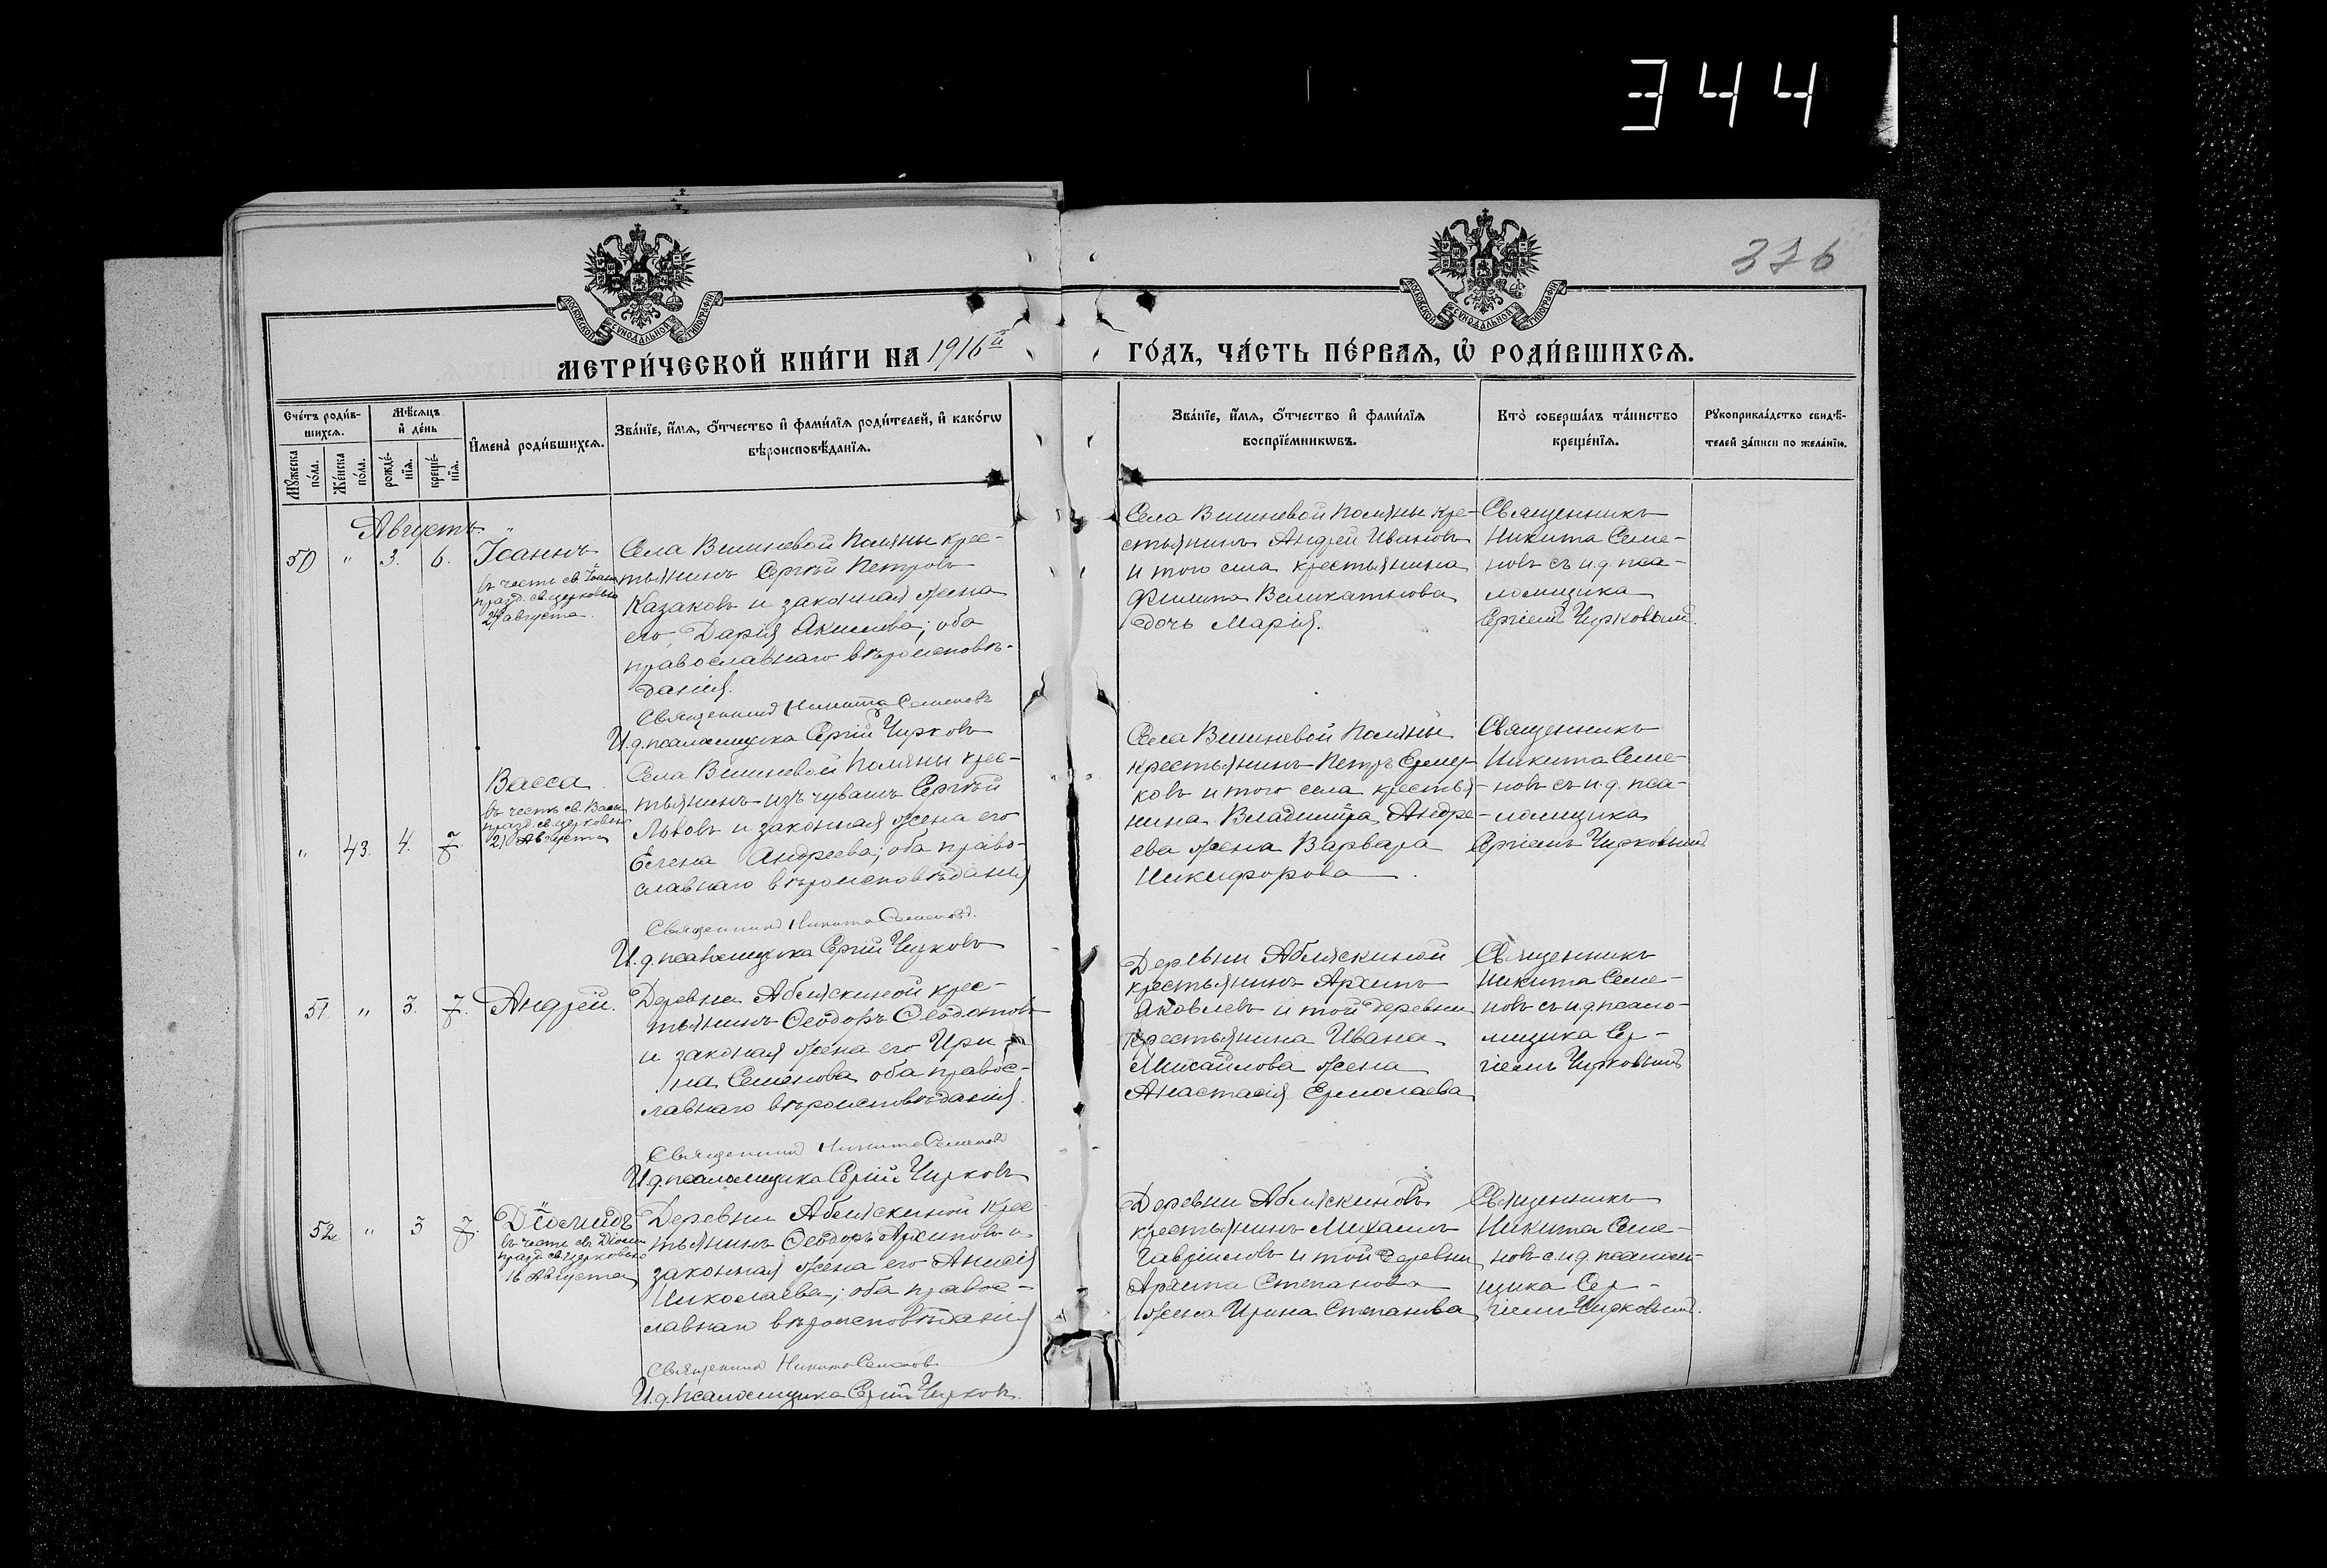 344
376
МОСКОВСКОЙ СѴНОДАЛЬНОЙ ТИПОГРАФІИ
МОСКОВСКОЙ СѴНОДАЛЬНОЙ ТИПОГРАФІИ
МЕТРИ́ЧЕСКОЙ КНИ́ГИ НА 1916й
ГО́ДЪ, ЧА́СТЬ ПЕ́РВАѦ, Ѡ҆ РОДИ́ВШИХСѦ.
Сче́тъ роди́в-
шихсѧ.
Мѣ́сѧцъ
и҆ де́нь
Мꙋ́жеска по́ла.
Же́нска по́ла.
рожде́-
нїѧ.
креще́-
нїѧ.
И҆мена̀ роди́вшихсѧ.
Зва́нїе, и҆́мѧ, ѻ҆́тчество и҆ фами́лїѧ роди́телей, и҆ како́гѡ
вѣроисповѣ́данїѧ.
Зва́нїе, и҆́мѧ, ѻ҆́тчество и҆ фами́лїѧ
воспрїе́мникѡвъ.
Кто̀ соверша́лъ та́инство
креще́нїѧ.
Рꙋкоприкла́дство свидѣ́-
телей за́писи по жела́нїю.
Августъ
50 " 3. 6. Іоаннъ
въ честь св. Іоан.
празд. св. церковью
29 августа.
Села Вишневой Поляны крес-
тьянинъ Сергѣй Петровъ
Казаковъ и законная жена
его Дарія Акимова; оба
православнаго вѣроисповѣ-
данія.
Священникъ Никита Семеновъ
И.д. псаломщика Сергій Чирковъ
Села Вишневой Поляны кре-
стьянинъ Андрей Ивановъ
и того села крестьянина
Филиппа Великатнова
дочь Марія.
Священникъ
Никита Семе-
новъ съ и.д. пса-
ломщика
Сергіемъ Чирковымъ.
" 43. 4. 7. Васса
въ честь св. Вассы
празд. св. церковью
21 Августа
Села Вишневой Поляны крес-
тьянинъ изъ чувашъ Сергѣй
Львовъ и законная жена его
Елена Андреева; оба право-
славнаго вѣроисповѣданія
Священникъ Никита Семеновъ.
И.д. псаломщика Сергій Чирковъ
Села Вишневой Поляны
крестьянинъ Петръ
ковъ и того села крестья-
нина Владиміра Андре-
ева жена Варвара
Никифорова.
Священникъ
Никита Семе-
новъ съ и.д. пса-
ломщика
Сергіемъ Чирковымъ
51 " 3. 7. Андрей.
Деревни Аблязкиной крес-
тьянинъ Ѳеодоръ Ѳеодотовъ
и законая жена его Ири-
на Семенова оба правос-
лавнаго вѣроисповѣданія.
Священникъ Никита Семеновъ
И.д. псаломщика Сергій Чирковъ
Деревни Аблязкиной
крестьянинъ Архипъ
Яковлевъ и той деревни
крестьянина Ивана
Михайлова жена
Анастасія Ермолаева
Священникъ
Никита Семе-
новъ съ и.д. псало-
мщика Сер-
гіемъ Чирковымъ
52 " 3 7. Діомидъ
въ честь св. Діоми.
празд. св. церковью
16 Августа
Деревни Аблязкиной крес
тьянинъ Ѳеодоръ Архиповъ и
законная жена его Анисія
Николаева; оба правос-
лавнаго вѣроисповѣданія
Священникъ Никита Семеновъ
И.д. псаломщика Сергій Чирковъ.
Деревни Аблязкиной
крестьянинъ Михаилъ
Гавріиловъ и той деревни
Архипа Степанова
жена Ирина Степанова
Священникъ
Никита Семе-
новъ с. и.д. псалом-
щика Сер-
гіемъ Чирковымъ.